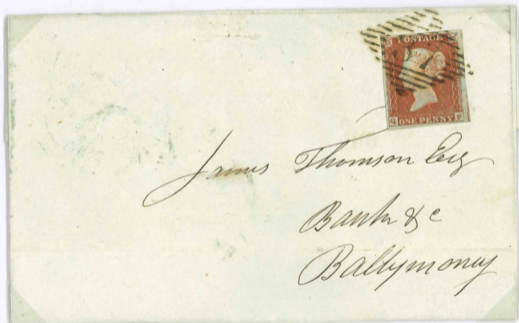 POSTAGE
ONE PENNY
James Thomson Esq
Bank &c
Ballymoney